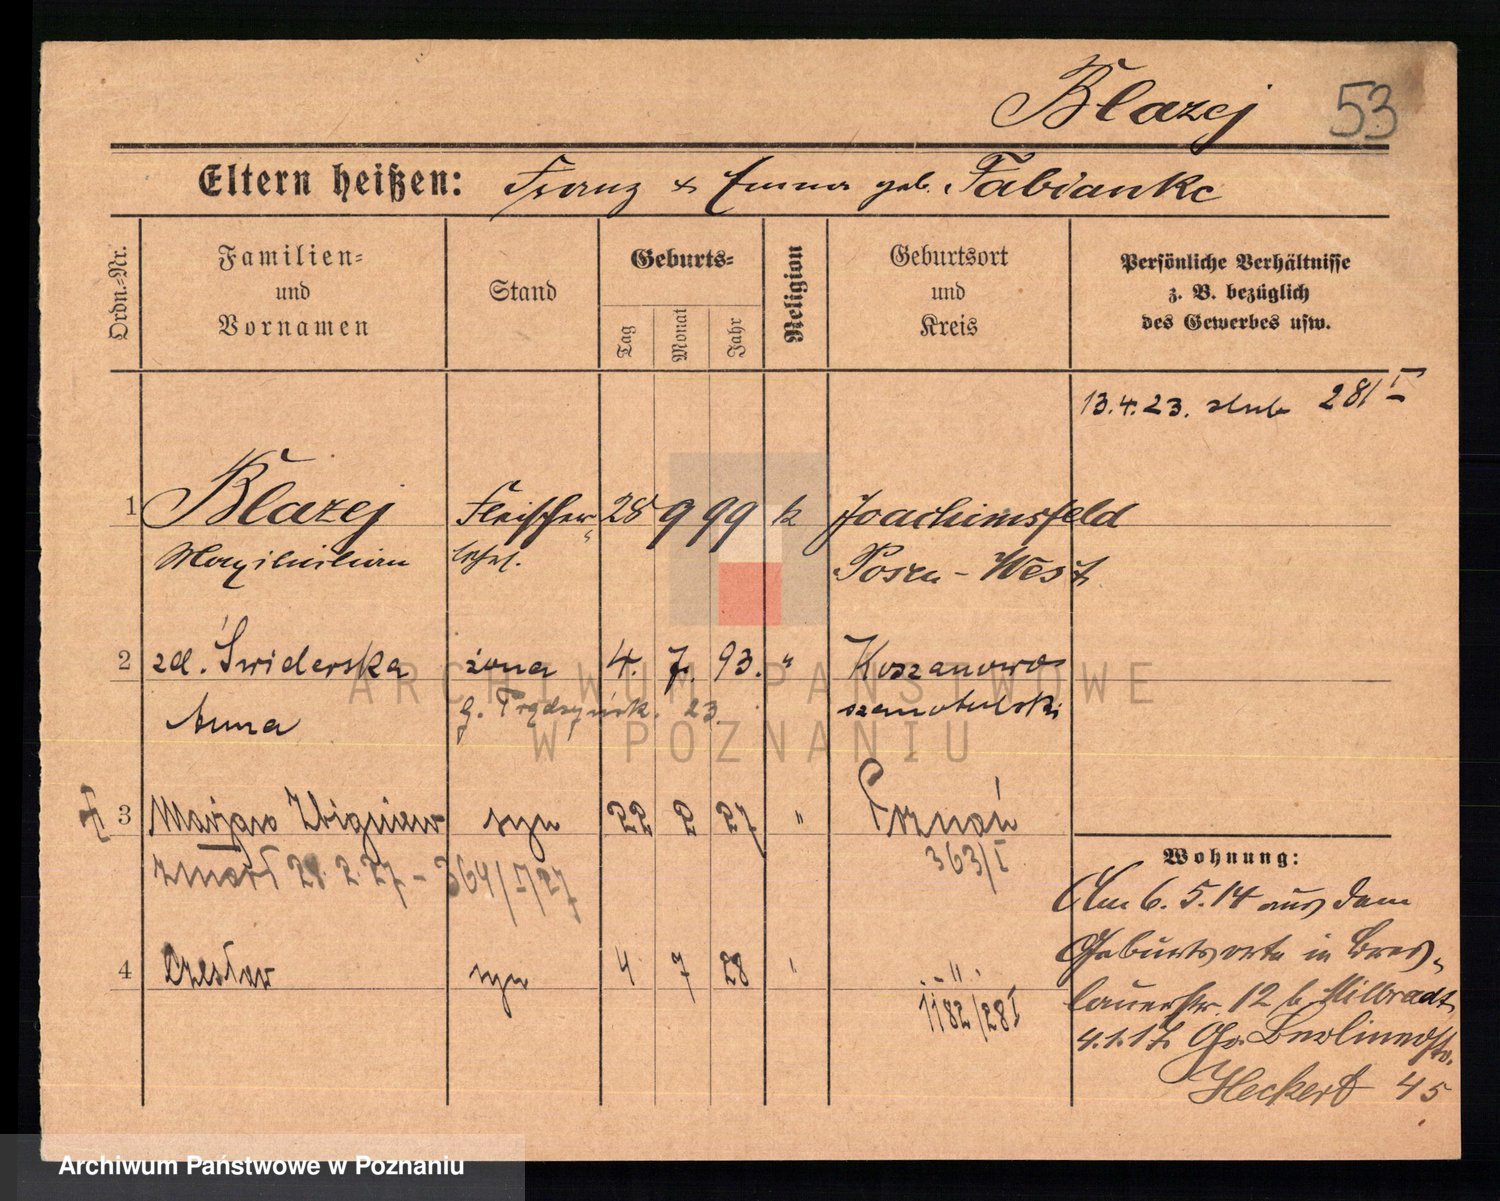 Blazej 53
Eltern heißen: Franz & Emma geb. Fabianke
Ordn.=Nr.
Familien=
und
Vornamen
Stand
Geburts=
Tag
Monat
Jahr
Religion
Geburtsort
und
Kreis
Persönliche Verhältnisse
z. B. bezüglich
des Gewerbes usw.
13.4.23. ślub 281 I
1 Blazej Fleischer 28 9 99 k Joachimsfeld
Maximilian lehrl. Posen - West
2 zd. Świderska żona 4. 7. 93. " Koszanowo
Anna szamotulski
3 Marjan Zbigniew syn 22 2 27 " Poznań
zmarł 28. 2. 27 - 364/I/27 363/I
Wohnung:
Am 6. 5. 14 aus dem
Geburtsorte in Bres-
lauerstr. 12 b. Milbradt
4 Czesław syn 4 7 28 " "
1182/28 I
4.1.17. Gr. Berlinerstr.
Heckert 45
ARCHIWUM PAŃSTWOWE
W POZNANIU
Archiwum Państwowe w Poznaniu